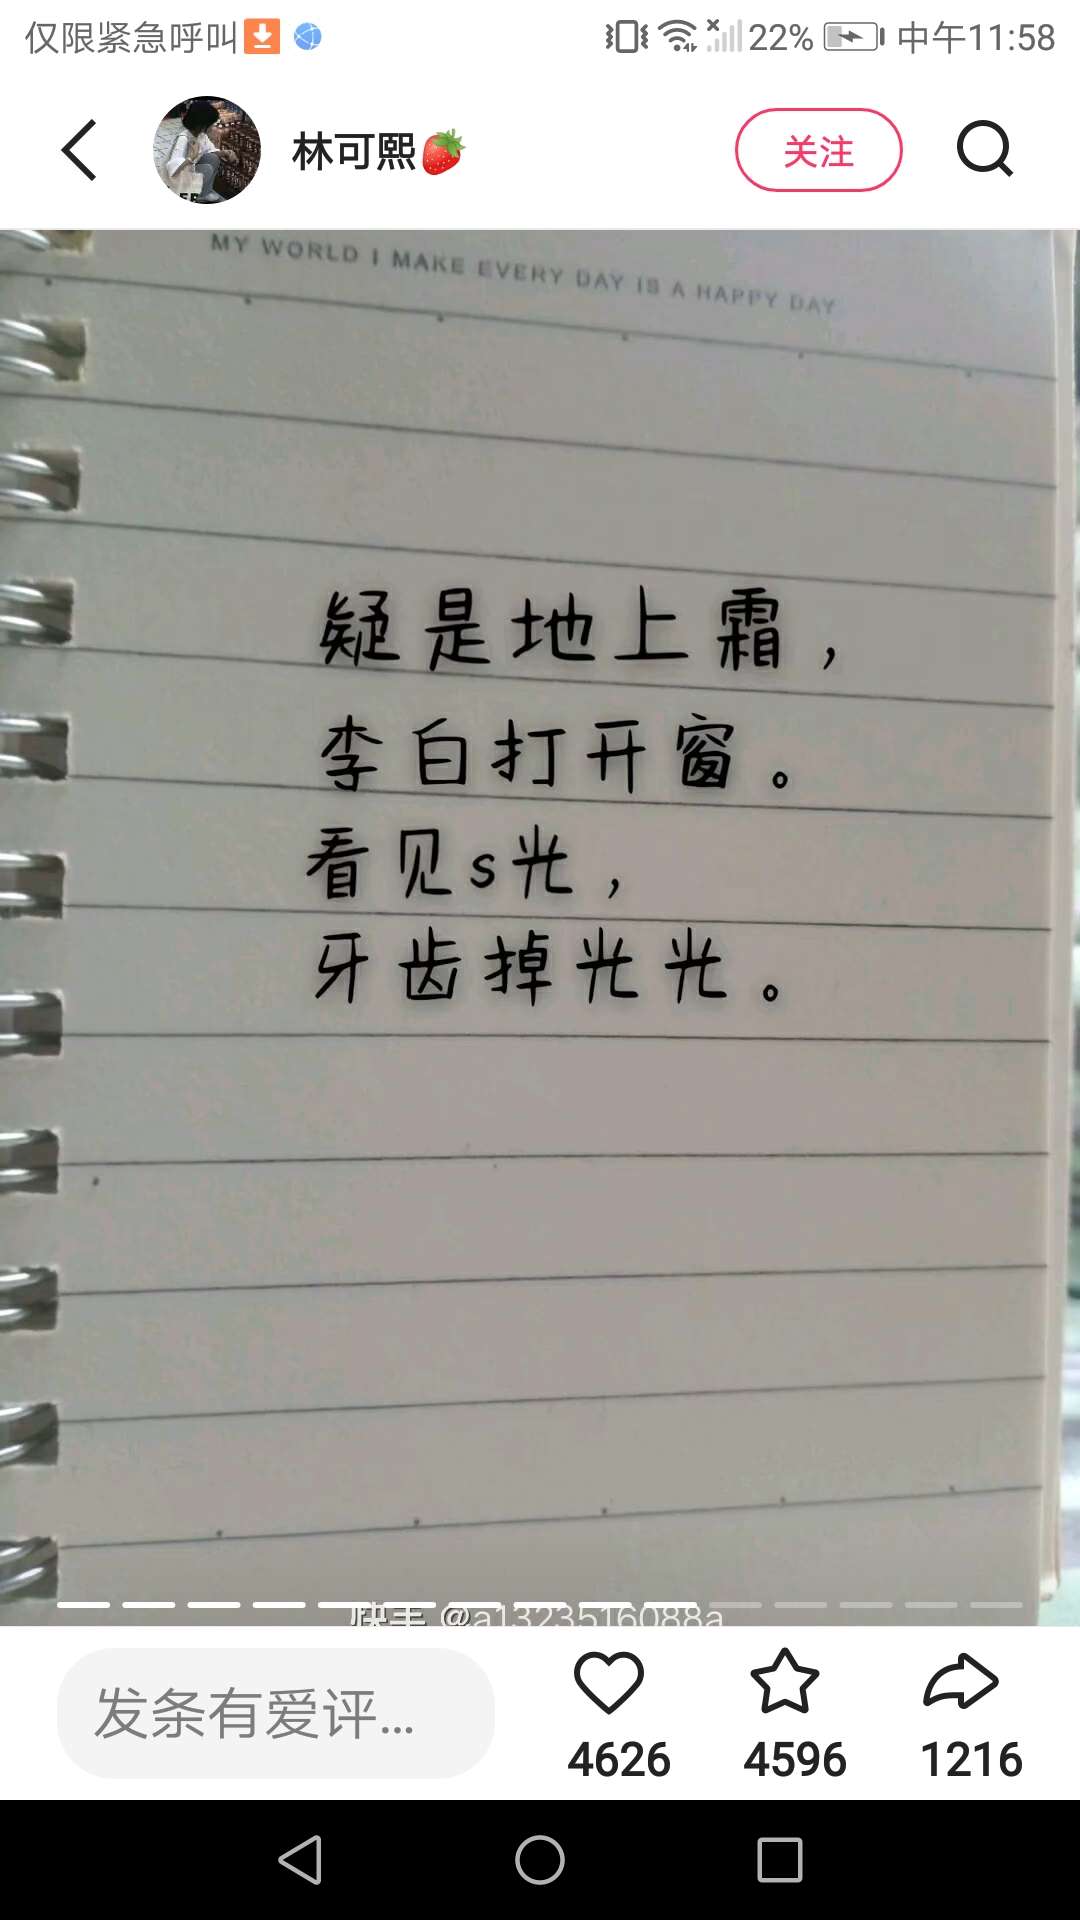 仅限紧急呼叫 22% 中午11:58
林可熙 关注
MY WORLD I MAKE EVERY DAY IS A HAPPY DAY
疑是地上霜，
李白打开窗。
看见s光，
牙齿掉光光。
快手 @a1323516088a
发条有爱评...
4626 4596 1216